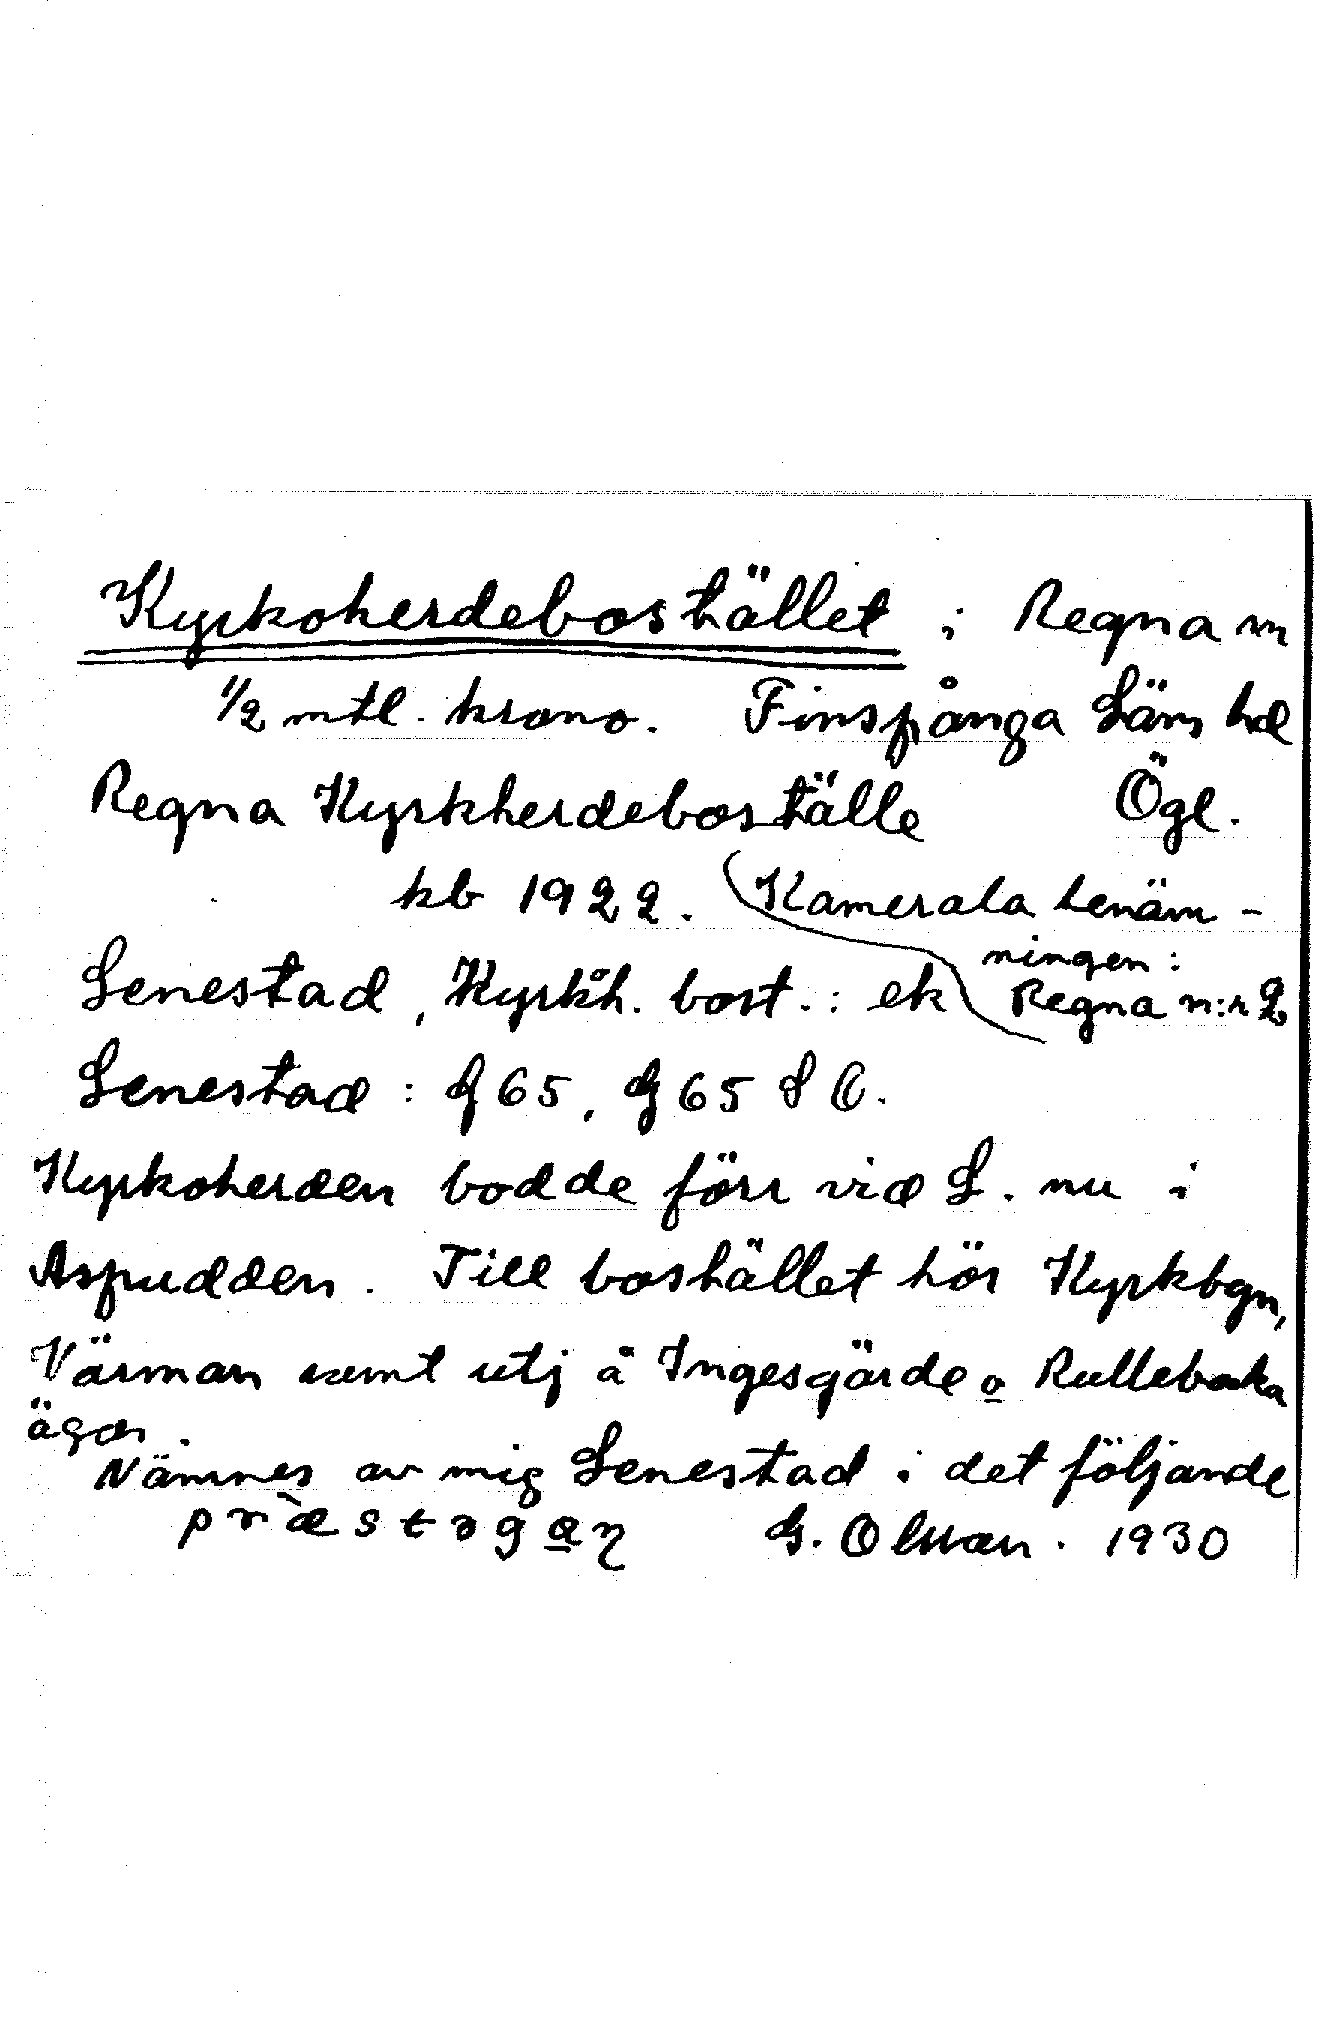 Kyrkoherdebostället i Regna sn
1/2 mtl. krono. Finspånga Läns hd
Regna Kyrkherdeboställe Ögl.
kb 1922. Kamerala benäm-
ningen:
Senestad, Kyrkh. bost.: ek Regna n:r 2
Senestad: G 65, G 65 S O.
Kyrkoherden bodde förr vid S. nu i
Aspudden. Till bostället hör Kyrkbgn,
Värman samt utj å Ingesgärde o Rullebacka
ägor.
Nämnes av mig Senestad i det följande
præstogaɳ G. Olsson. 1930